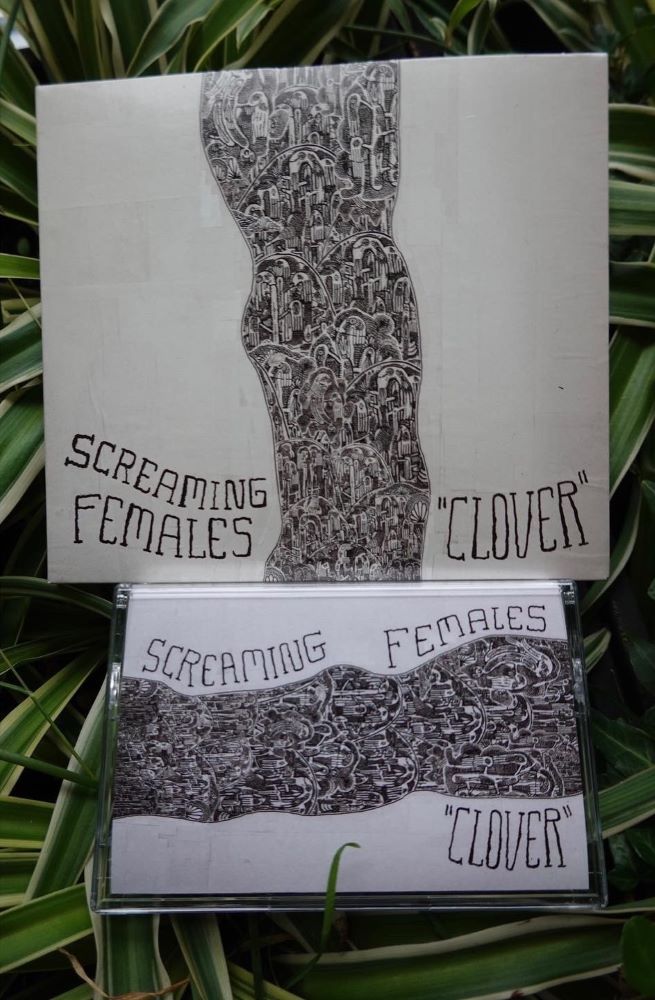 SCREAMING
FEMALES
"CLOVER"
SCREAMING FEMALES
"CLOVER"